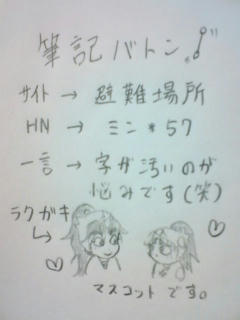 筆記バトン
サイト → 避難場所
HN → ミン*57
一言 → 字が汚いのが
悩みです(笑)
ラクガキ
マスコットです。